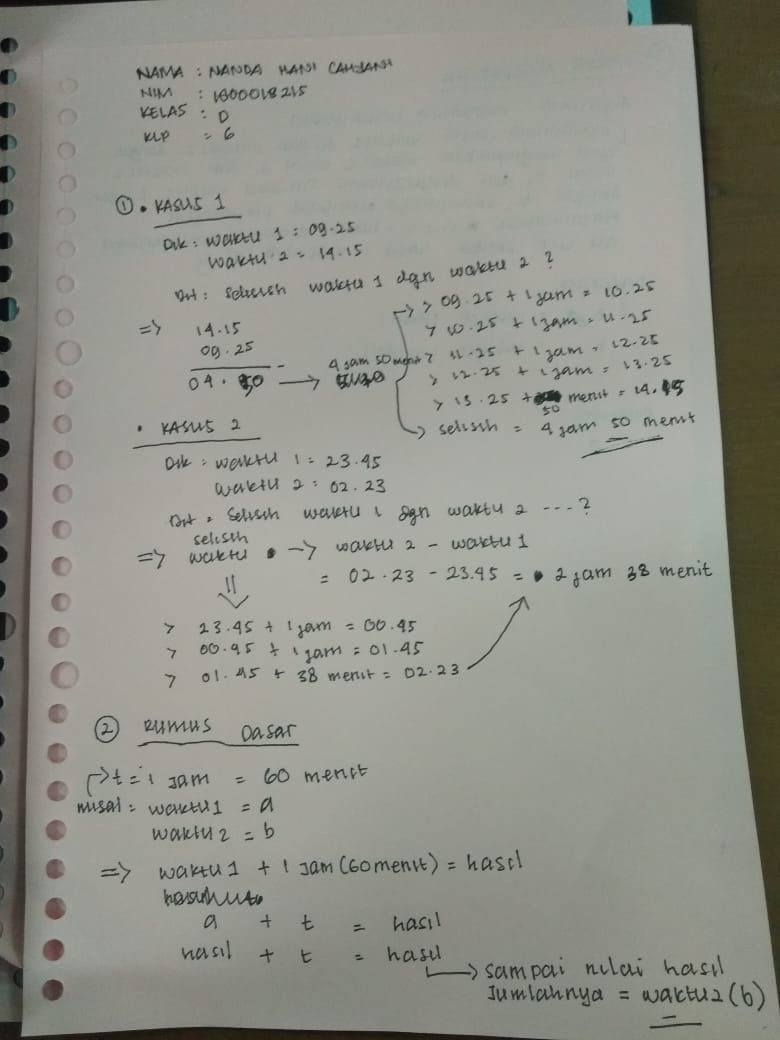 NAMA : NANDA HANI CAHYANI
NIM : 1800018215
KELAS : D
KLP = 6
① • KASUS 1
Dik : Waktu 1 : 09.25
Waktu 2 = 14.15
Dit : Selisih waktu 1 dgn waktu 2 ?
=> 14.15
09.25 -
04.50 → 4 jam 50 menit
> 09.25 + 1 jam = 10.25
> 10.25 + 1 jam = 11.25
> 11.25 + 1 jam = 12.25
> 12.25 + 1 jam = 13.25
> 13.25 + 50 menit = 14.15
→ selisih = 4 jam 50 menit
• KASUS 2
Dik : waktu 1 = 23.45
waktu 2 = 02.23
Dit = Selisih waktu 1 dgn waktu 2 ---?
=> selisih waktu → waktu 2 - waktu 1
= 02.23 - 23.45 = 2 jam 38 menit
> 23.45 + 1 jam = 00.45
> 00.45 + 1 jam = 01.45
> 01.45 + 38 menit = 02.23
② RUMUS DASAR
→ t = 1 jam = 60 menit
misal = waktu 1 = a
waktu 2 = b
=> waktu 1 + 1 jam (60 menit) = hasil
a + t = hasil
hasil + t = hasil
→ sampai nilai hasil
Jumlahnya = waktu 2 (b)